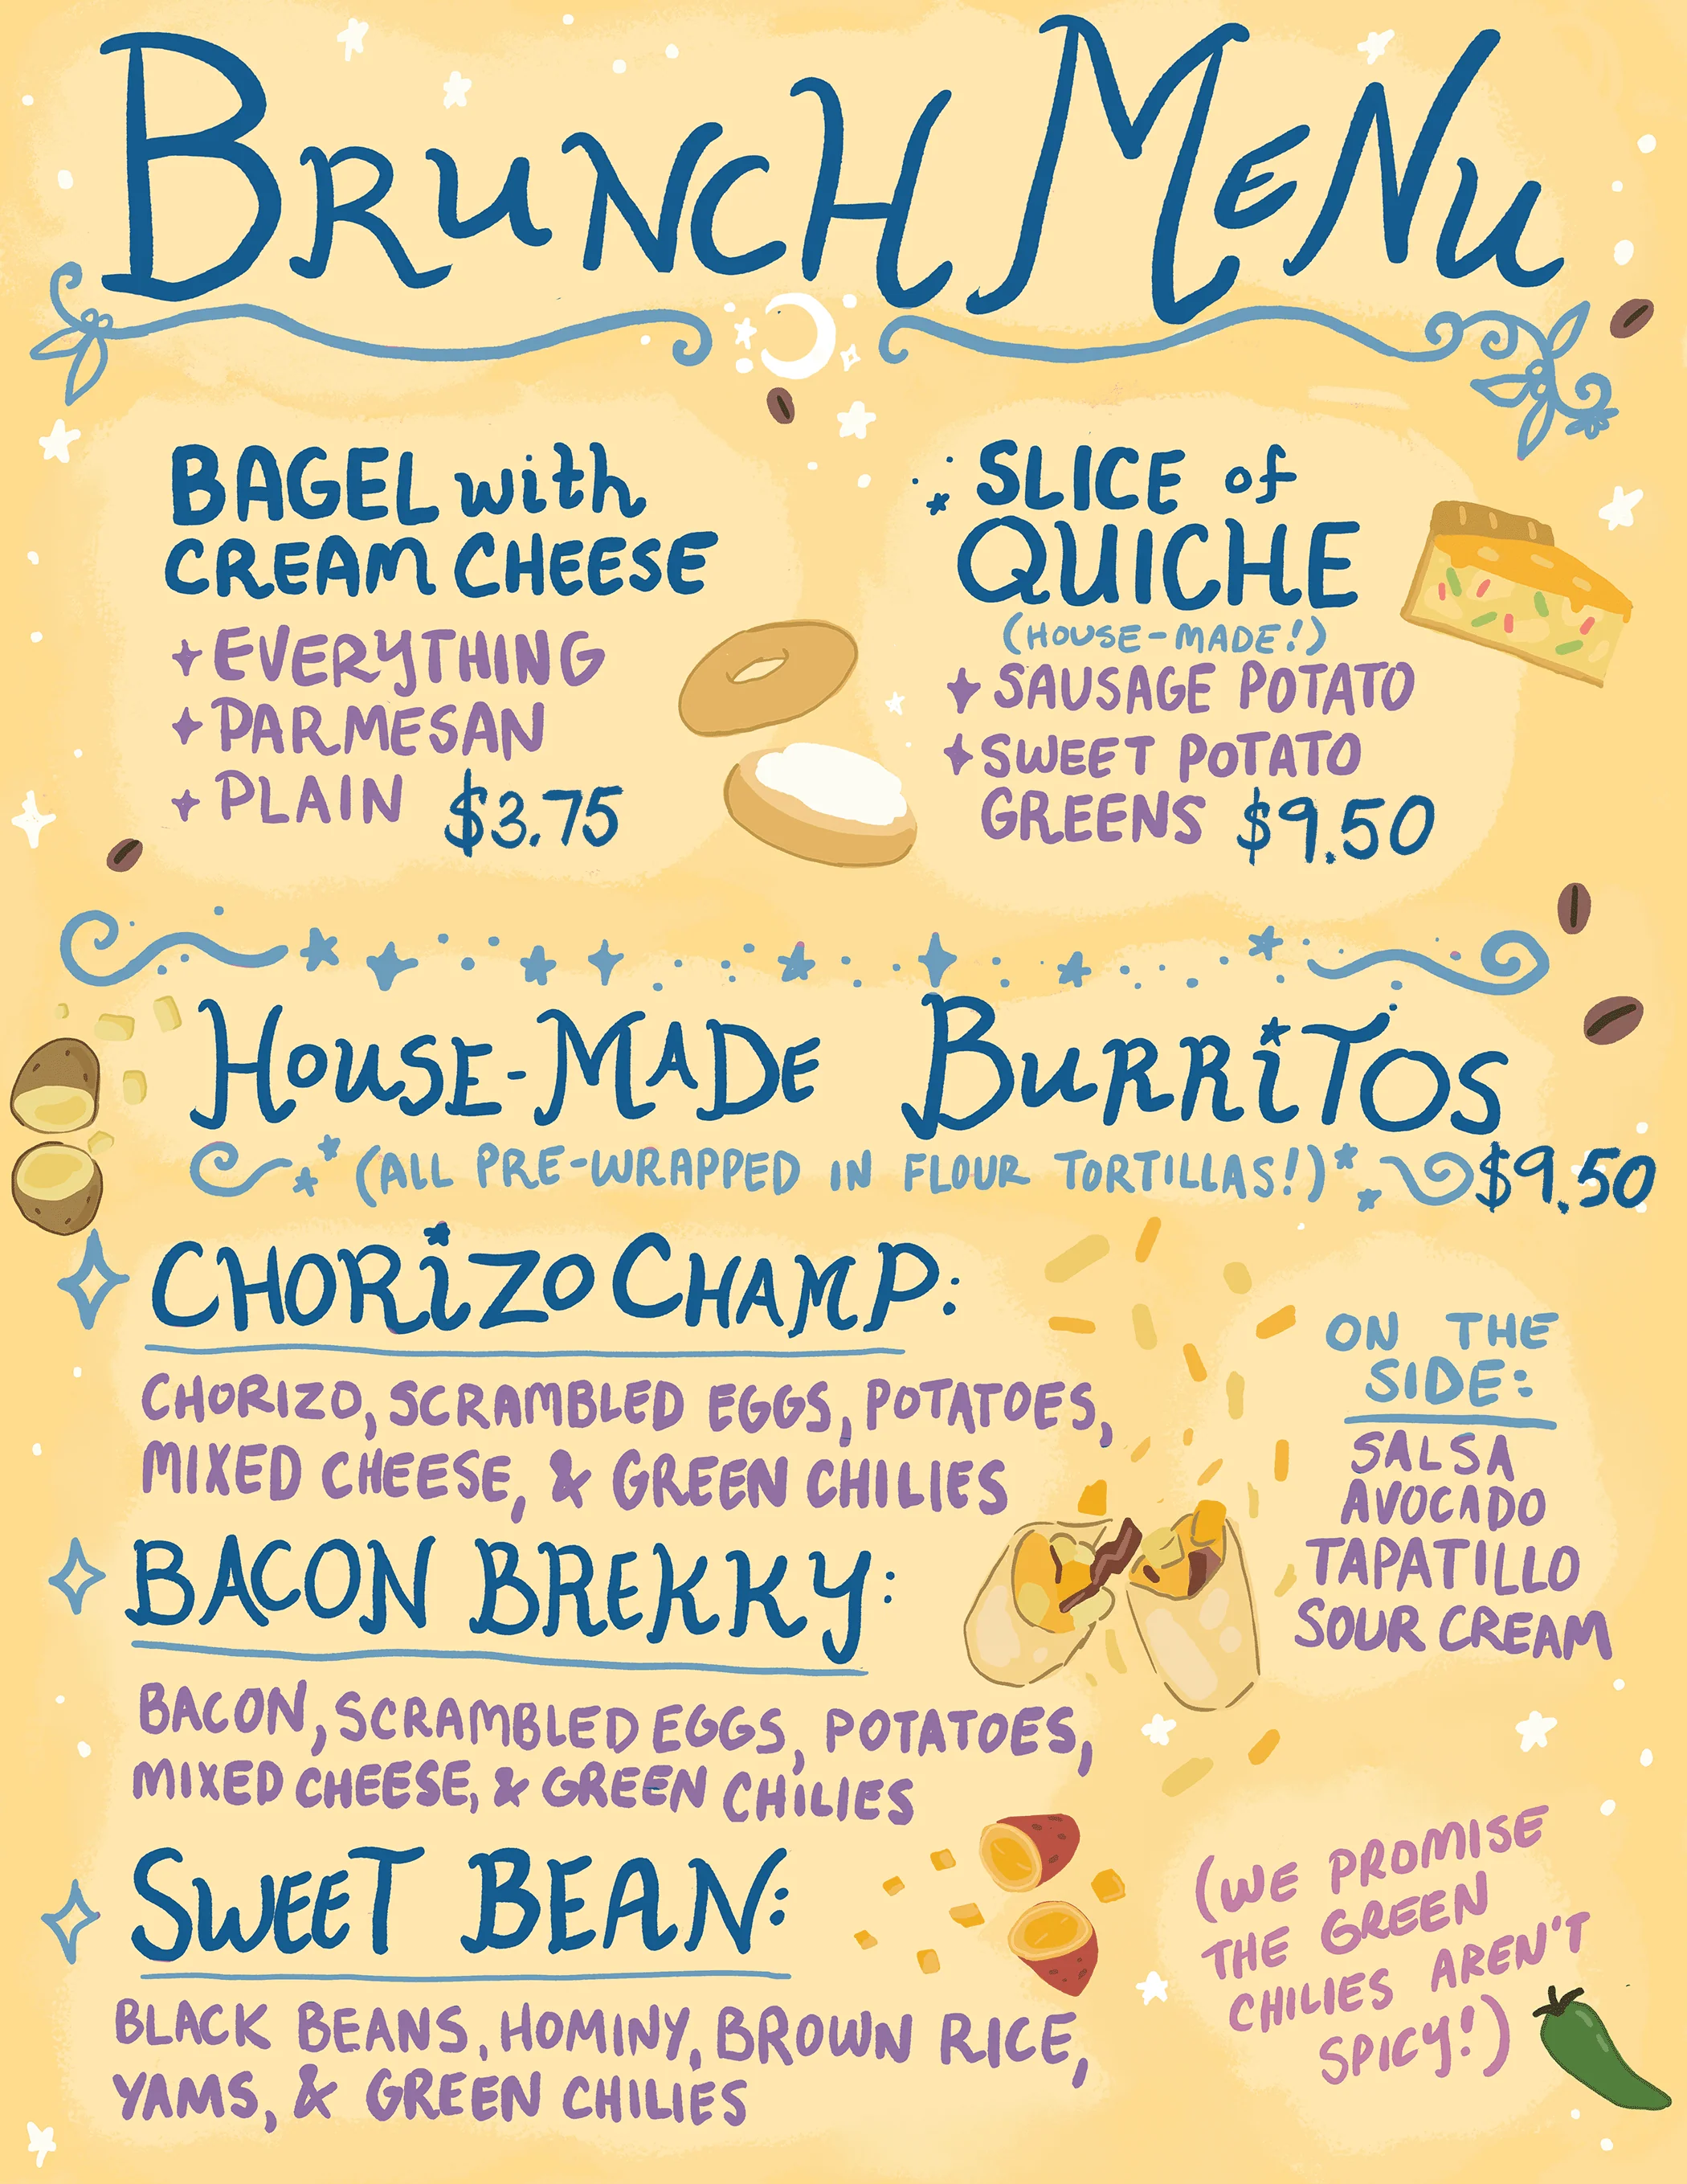 BRUNCH MENU
BAGEL with
CREAM CHEESE
EVERYTHING
PARMESAN
PLAIN $3.75
SLICE of
QUICHE
(HOUSE-MADE!)
SAUSAGE POTATO
SWEET POTATO
GREENS $9.50
HOUSE-MADE BURRITOS
(ALL PRE-WRAPPED IN FLOUR TORTILLAS!) $9.50
CHORIZO CHAMP:
CHORIZO, SCRAMBLED EGGS, POTATOES,
MIXED CHEESE, & GREEN CHILIES
BACON BREKKY:
BACON, SCRAMBLED EGGS, POTATOES,
MIXED CHEESE, & GREEN CHILIES
SWEET BEAN:
BLACK BEANS, HOMINY, BROWN RICE,
YAMS, & GREEN CHILIES
ON THE
SIDE:
SALSA
AVOCADO
TAPATILLO
SOUR CREAM
(WE PROMISE
THE GREEN
CHILIES AREN'T
SPICY!)